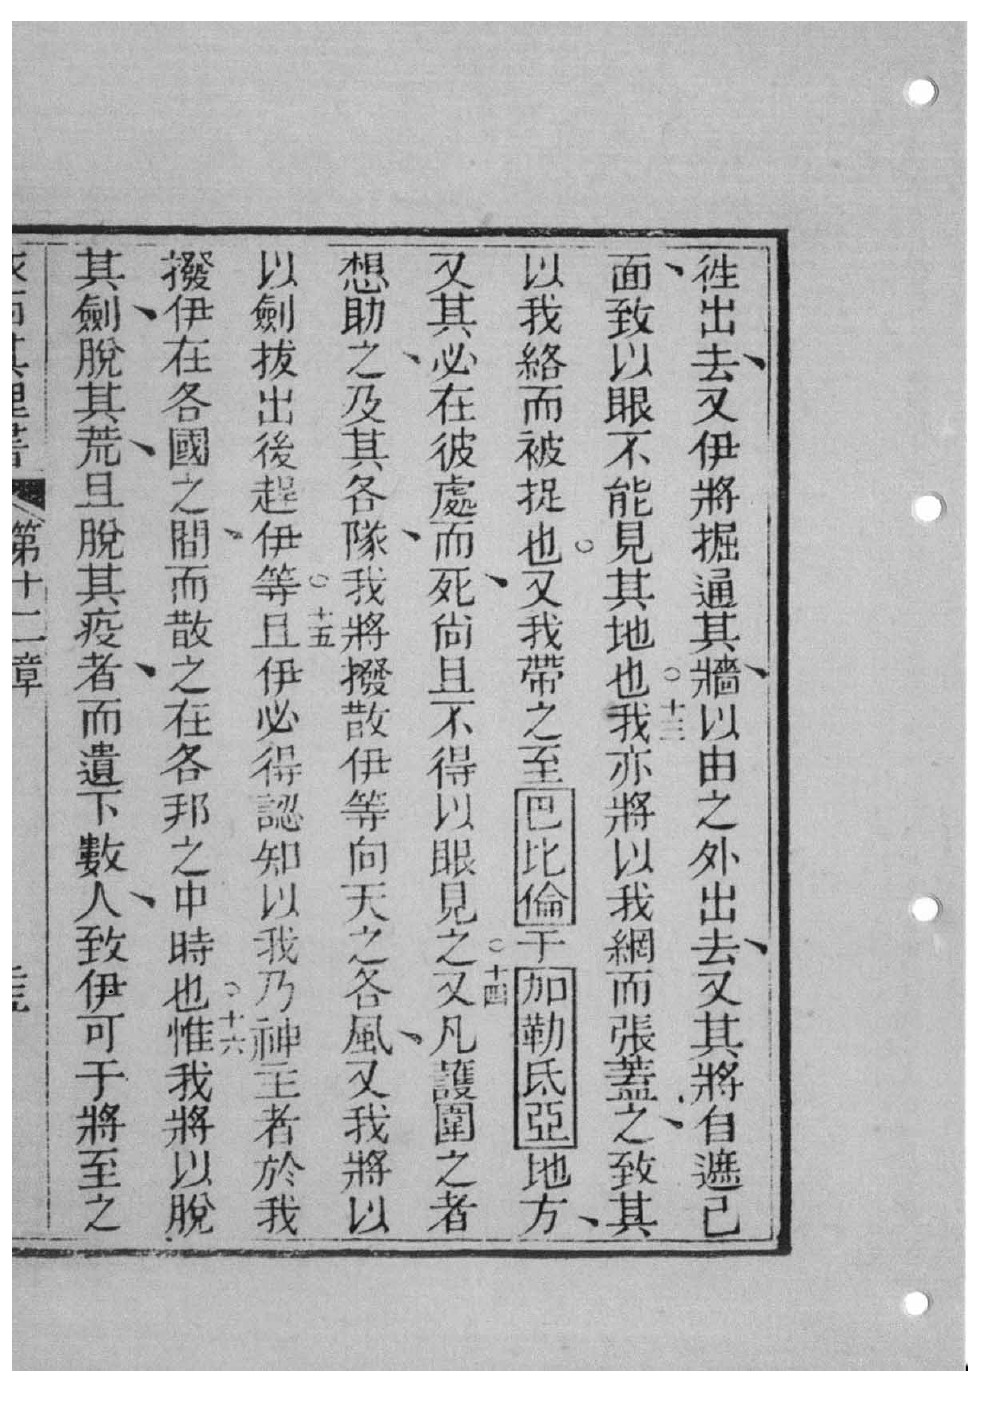 徃出去、又伊將掘通其牆、以由之外出去、又其將自遮己
面、致以眼不能見其地也○十三我亦將以我網而張蓋之、致其
以我絡而被捉也○又我帶之至巴比倫于加勒氐亞地方、
又其必在彼處而死、尙且不得以眼見之○十四又凡護圍之者
想助之、及其各隊、我將撥散伊等向天之各風、又我將以
以劍拔出後趕伊等○十五且伊必得認知以我乃神主者於我
撥伊在各國之間、而散之在各邦之中時也○十六惟我將以脫
其劍、脫其荒、且脫其疫者、而遺下數人、致伊可于將至之
第十二章